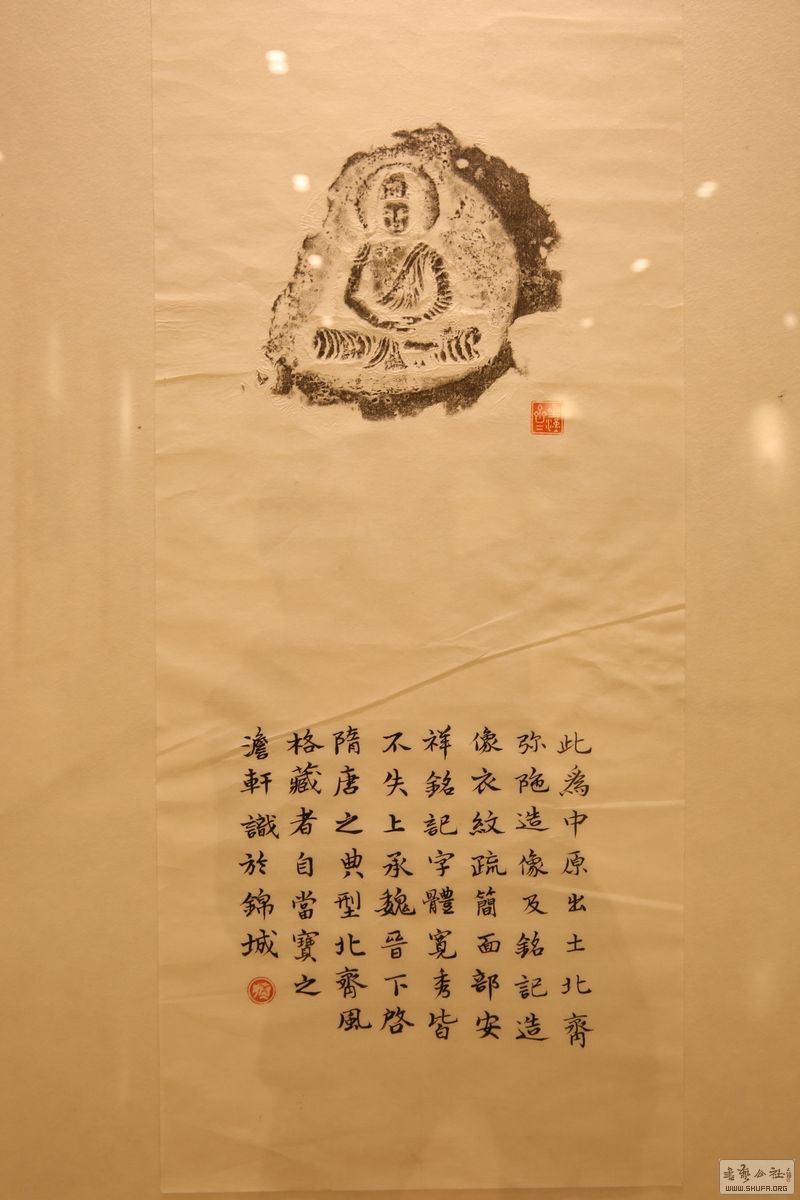 此為中原出土北齊
弥陁造像及銘記造
像衣紋疏簡面部安
祥銘記字體寬秀皆
不失上承魏晉下啓
隋唐之典型北齊風
格藏者自當寶之
澹軒識於錦城
WWW.SHUFA.ORG